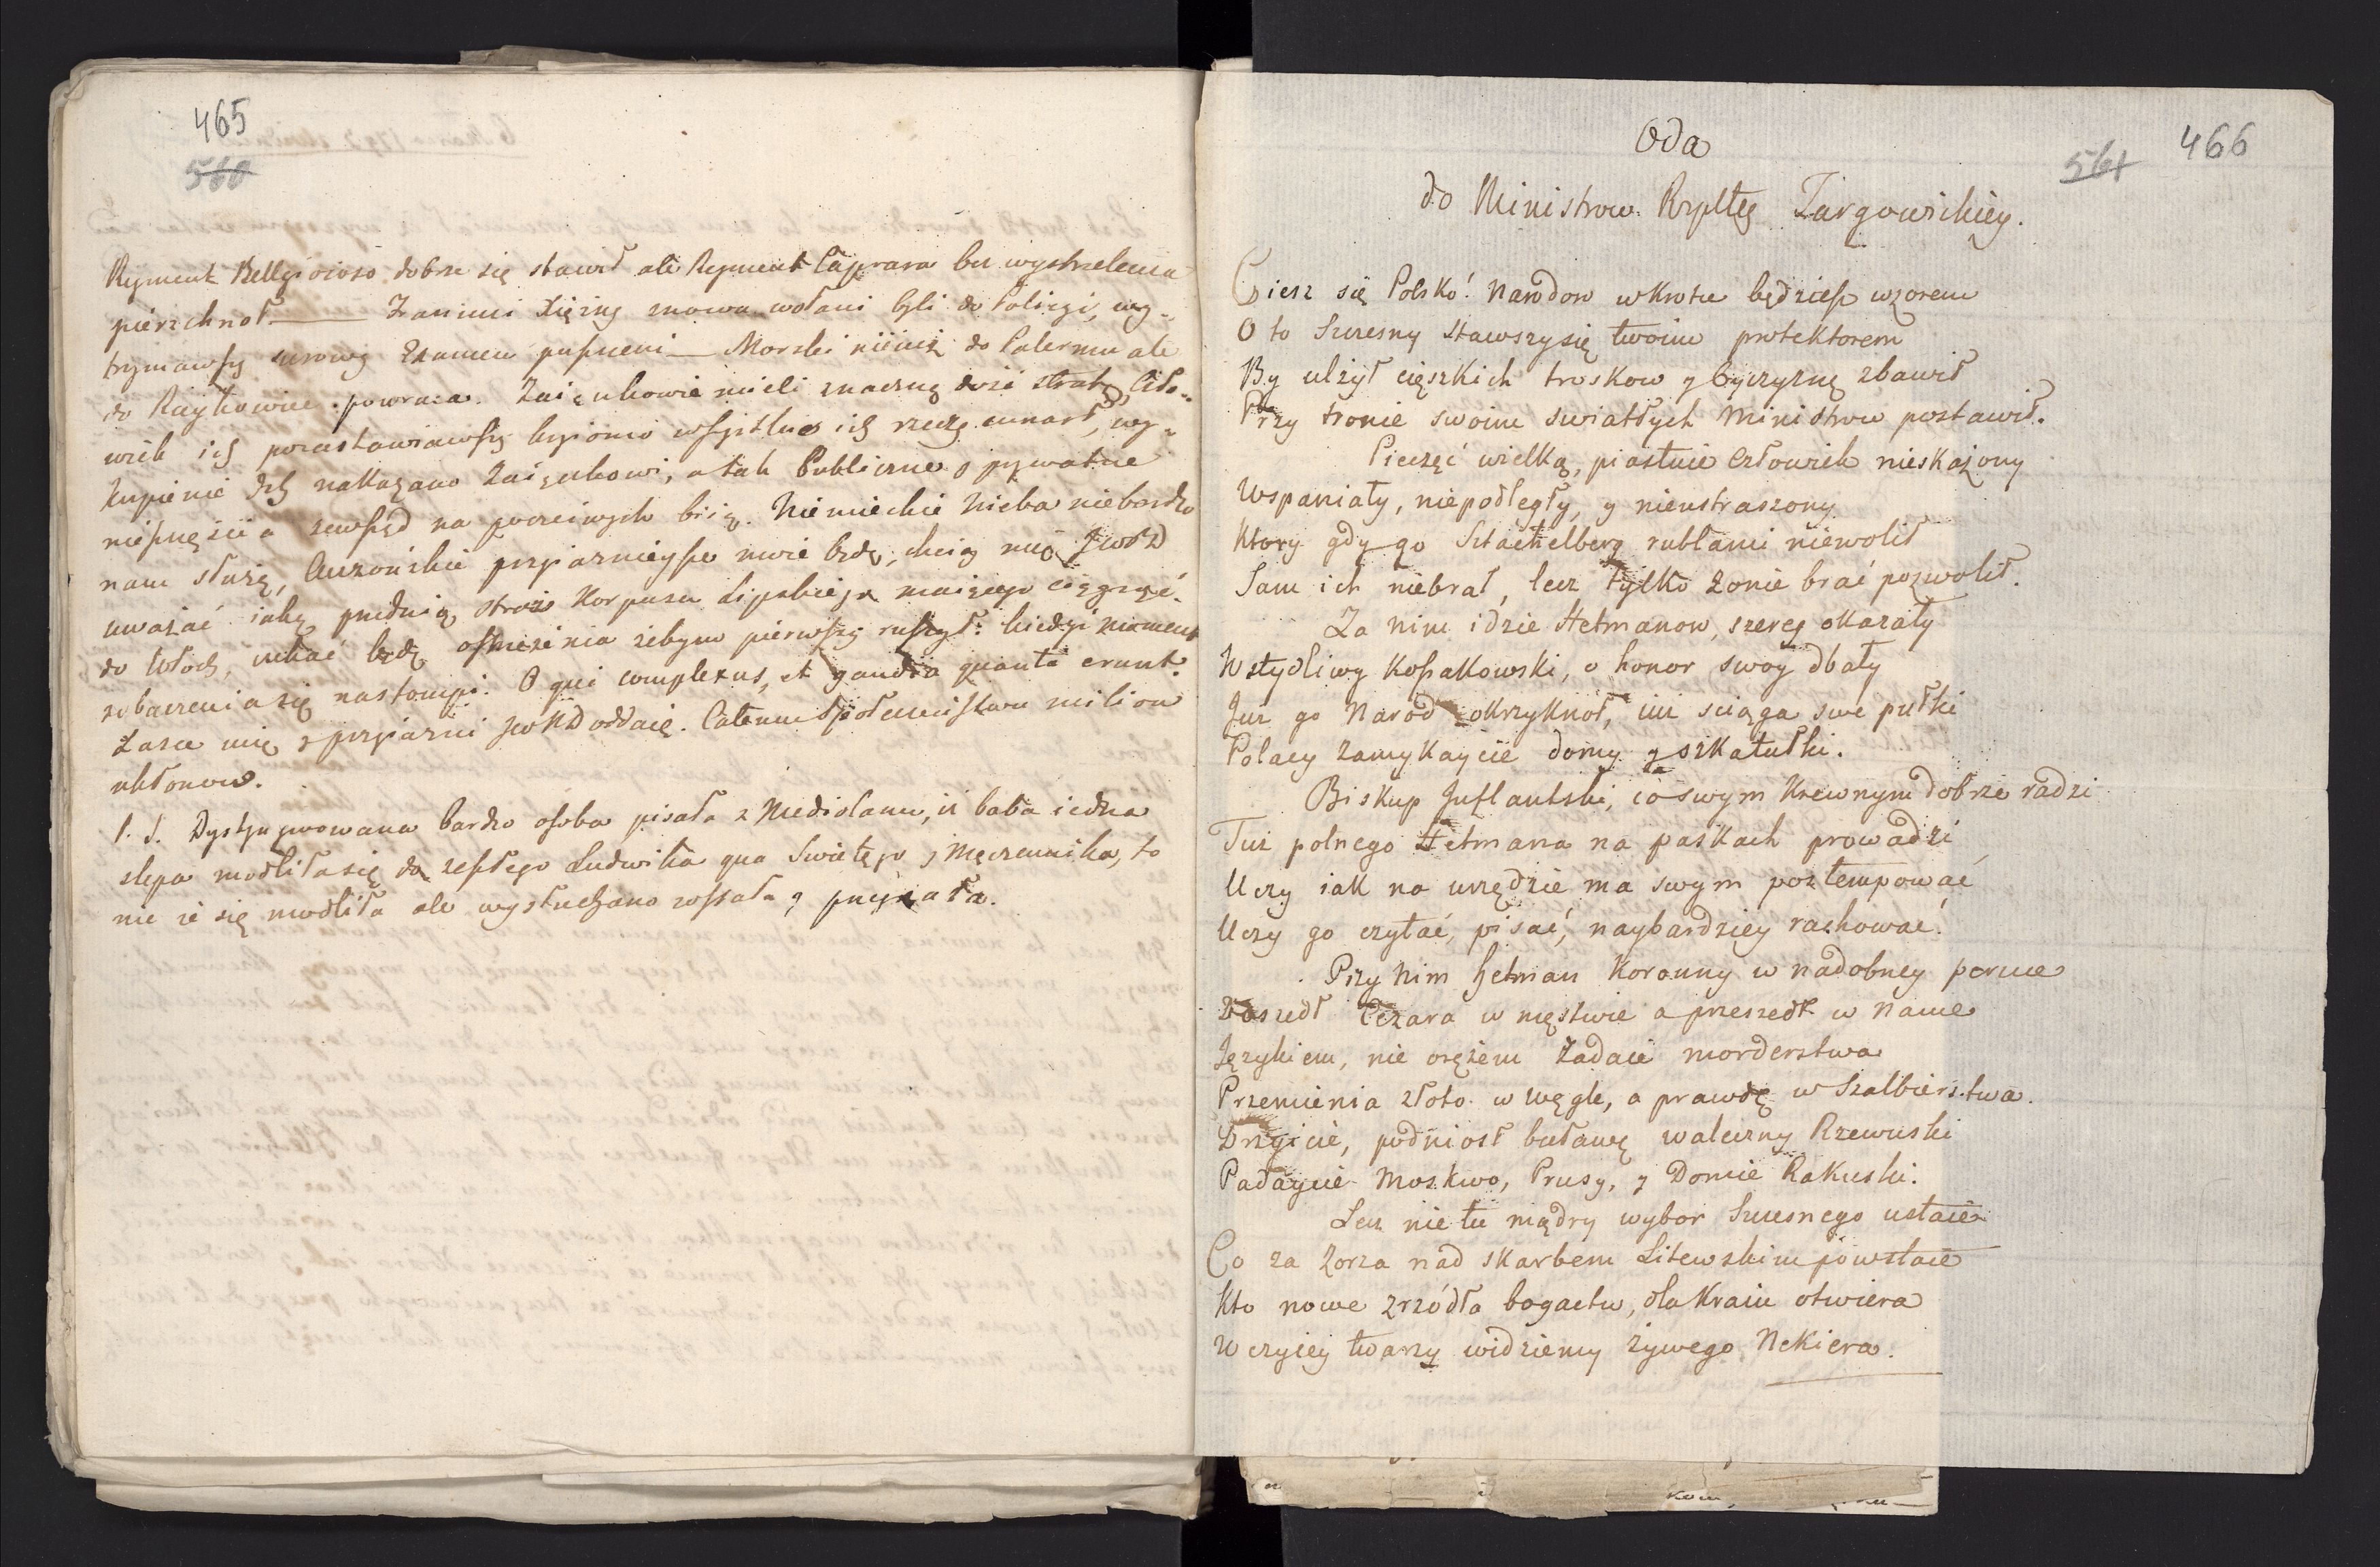 465
560
Regment Bellgioioso dobrze się stawił ale Regment Caprara bez wystrzelenia
pierzchnoł — Xiężny znowu wołani byli do Policyi, wy-
trzymawszy surowy Examen puszczeni — Morski niejusz do Palermu ale
do Raytkowiec powraca. Zaięckowie mieli znaczną dosić stratę, Czło-
wiek ich pozastawiawszy wszystkie ich rzeczy umarł, wy-
kupienie ich nakazano Zaięckowi, a tak Publiczne y prywatne
nieszczęścia zewsząd na poczciwych biią. Niemieckie Nieba niebardzo
nam służą, Auzońskie przyiaznieysze mnie będą, chciey mię JWWD
uważać iako przednią straż Korpusu Lipskiego maiącego ciągnąć
do Włoch, czekać będę oznaczenia żebym pierwszy ruszył: kiedyż moment
zobaczenia się nastompi. O qui complexus, et gaudia quanta erunt.
Łasce mię y przyiaźni JWWD oddaię. Całemu Społeczeństwu milion
ukłonow.
P. S. Dystyngwowana bardzo osoba pisała z Mediolanu, iż baba iedna
slepa modliła się do zeszłego Ludwika qua Swiętego y Męczennika, to
nie że się modliła ale wysłuchano została y przejrzała.
Oda
561
466
do Ministrow Rzpltey Targowickiey.
Ciesz się Polsko! Narodow wkrotce będziesz wzorem
O to Szczesny stawszy się twoim protektorem
By ulżył cięszkich troskow y Oyczyznę zbawił
Przy tronie swoim swiatłych Ministrow postawił.
Pieczęć wielką, piastuie Człowiek nieskażony
Wspaniały, niepodległy, y nieustraszony
Ktory gdy go Sztachelberg rublami niewolił
Sam ich niebrał, lecz tylko żonie brać pozwolił.
Za nim idzie Hetmanow, szereg okazały
Wstydliwy Kossakowski, o honor swoy dbały
Już go Narod okrzyknoł, iuż sciąga swe pułki
Polacy zamykaycie domy y szkatułki.
Biskup Inflantski, co swym Krewnym dobrze radzi
Tuż polnego Hetmana na paskach prowadzi
Uczy iak na urzędzie ma swym postempować
Uczy go czytać, pisać, naybardziey rachować.
Przy Nim hetman Koronny w nadobney peruce
Doszedł Cezara w męstwie a przeszedł w nauce
Językiem, nie orężem zadaie morderstwa
Przemienia złoto w węgle, a prawdę w Szalbierstwa.
Drzyicie, podniosł buławę waleczny Rzewuski
Padaycie Moskwo, Prusy, y Domie Rakuski.
Lecz nie tu mądry wybor Szczesnego ustaie
Co za zorza nad skarbem Litewskim powstaie
Kto nowe zrzódła bogactw, dla Kraiu otwiera
W czyiey twarzy widziemy żywego Nekiera.